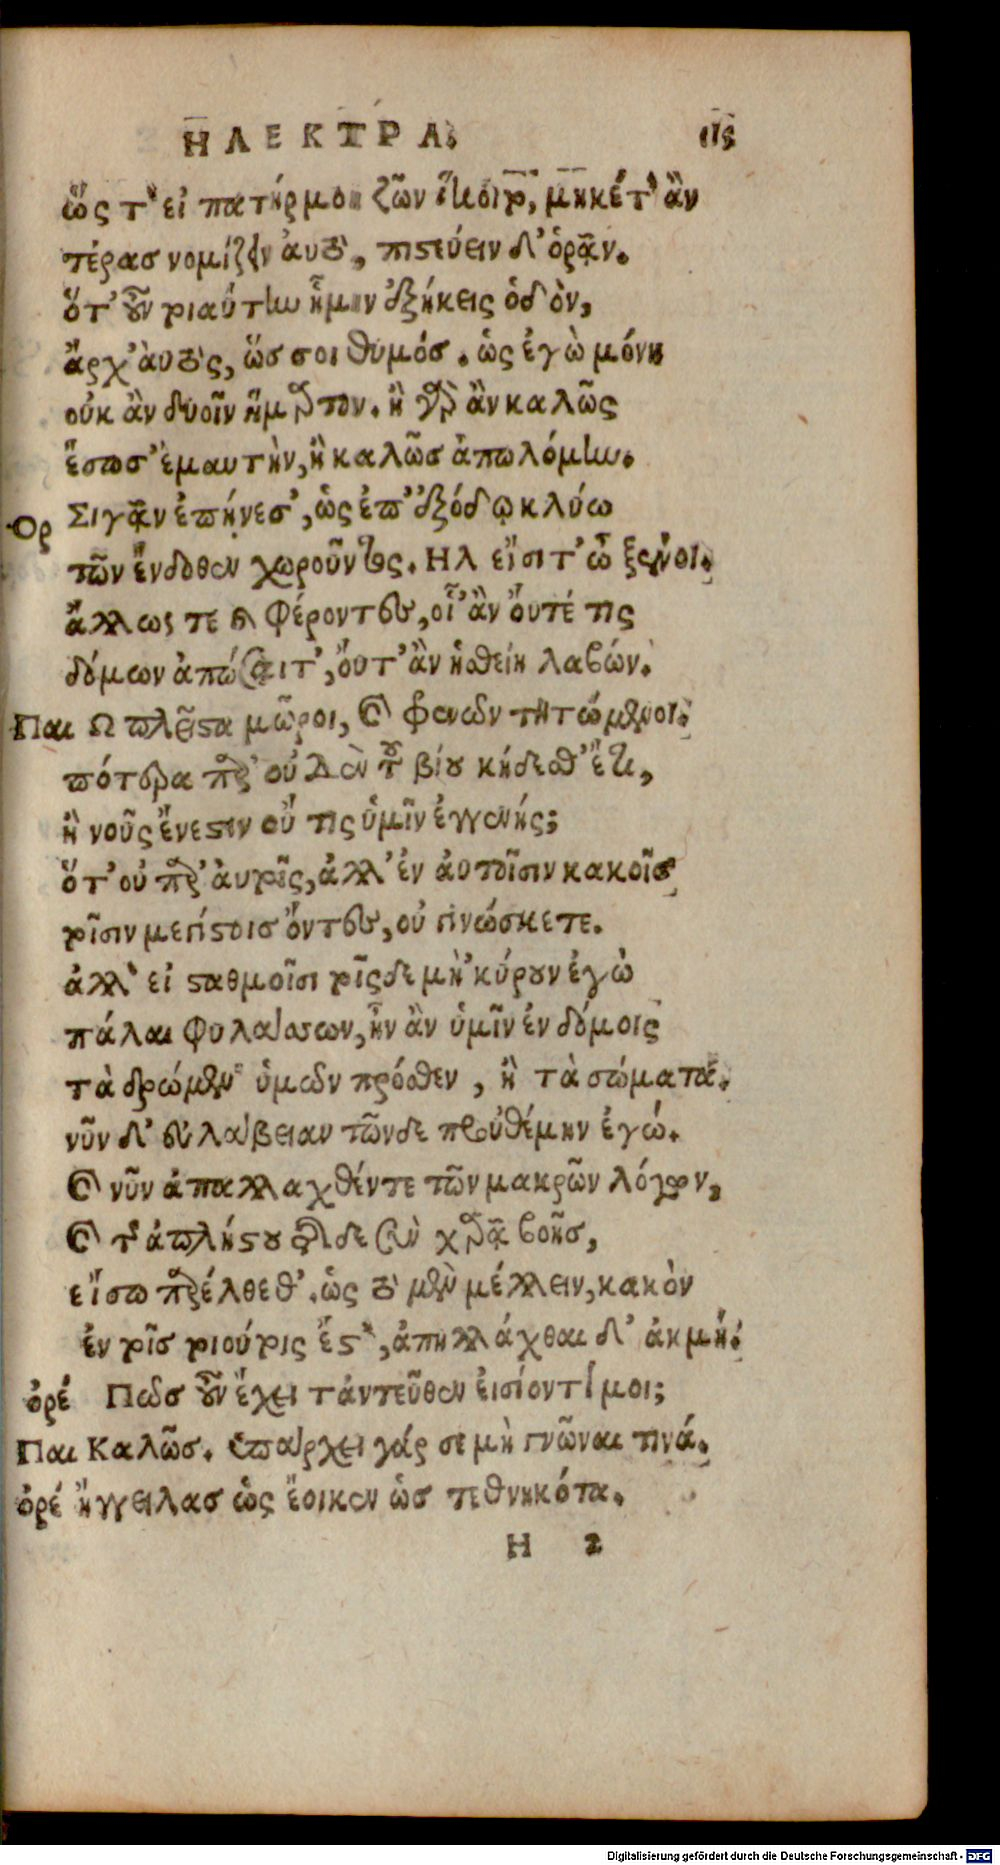 ΗΛΕΚΤΡΑ.
ὥς τ' εἰ πατήρ μοι ζῶν ἵκοιτο, μηκέτ' ἂν
τέρας νομίζειν ἀυτὸ, πιστεύειν δ' ὁρᾷν.
ὅτ' οὖν τοιαύτην ἡμὶν ἐξήκεις ὁδὸν,
ἄρχ' ἀυτὸς, ὥς σοι θυμός. ὡς ἐγὼ μόνη
οὐκ ἂν δυοῖν ἥμαρτον. ἢ γὰρ ἂν καλῶς
ἔσωσ' ἐμαυτὴν, ἢ καλῶς ἀπωλόμην.
Ορ Σιγᾷν ἐπήνεσ', ὡς ἐπ' ἐξόδῳ κλύω
τῶν ἔνδοθεν χωροῦντος. Ηλ εἴσιτ' ὦ ξένοι.
ἄλλως τε καὶ φέροντες, οἷ' ἂν οὔτέ τις
δόμων ἀπώσαιτ', οὔτ' ἂν ἡσθείη λαβών.
Παι Ω πλεῖστα μῶροι, καὶ φρενῶν τητώμενοι.
πότερα παρ' οὐδὲν τοῦ βίου κήδεσθ' ἔτι,
ἢ νοῦς ἔνεστιν οὔ τις ὑμῖν ἐγγενής;
ὅτ' οὐ παρ' ἀυτοῖς, ἀλλ' ἐν ἀυτοῖσιν κακοῖς
τοῖσιν μεγίστοις ὄντες, οὐ γινώσκετε.
ἀλλ' εἰ σταθμοῖσι τοῖσδε μὴ 'κύρουν ἐγὼ
πάλαι φυλάσσων, ἦν ἂν ὑμῖν ἐν δόμοις
τὰ δρώμεν' ὑμῶν πρόσθεν, ἢ τὰ σώματα.
νῦν δ' εὐλάβειαν τῶνδε προὐθέμην ἐγώ.
καὶ νῦν ἀπαλλαχθέντε τῶν μακρῶν λόγων,
καὶ τῆς ἀπλήστου τῆσδε σὺν χαρᾷ βοῆς,
εἴσω παρέλθεθ'. ὡς τὸ μὲν μέλλειν, κακὸν
ἐν τοῖς τοιούτοις ἔστ', ἀπηλλάχθαι δ' ἀκμή.
ὀρέ Πῶς οὖν ἔχει τἀντεῦθεν εἰσίοντί μοι;
Παι Καλῶς. ὑπάρχει γάρ σε μὴ γνῶναι τινά.
ὀρέ ἤγγειλας ὡς ἔοικεν ὡς τεθνηκότα.
Η 2
Digitalisierung gefördert durch die Deutsche Forschungsgemeinschaft - DFG